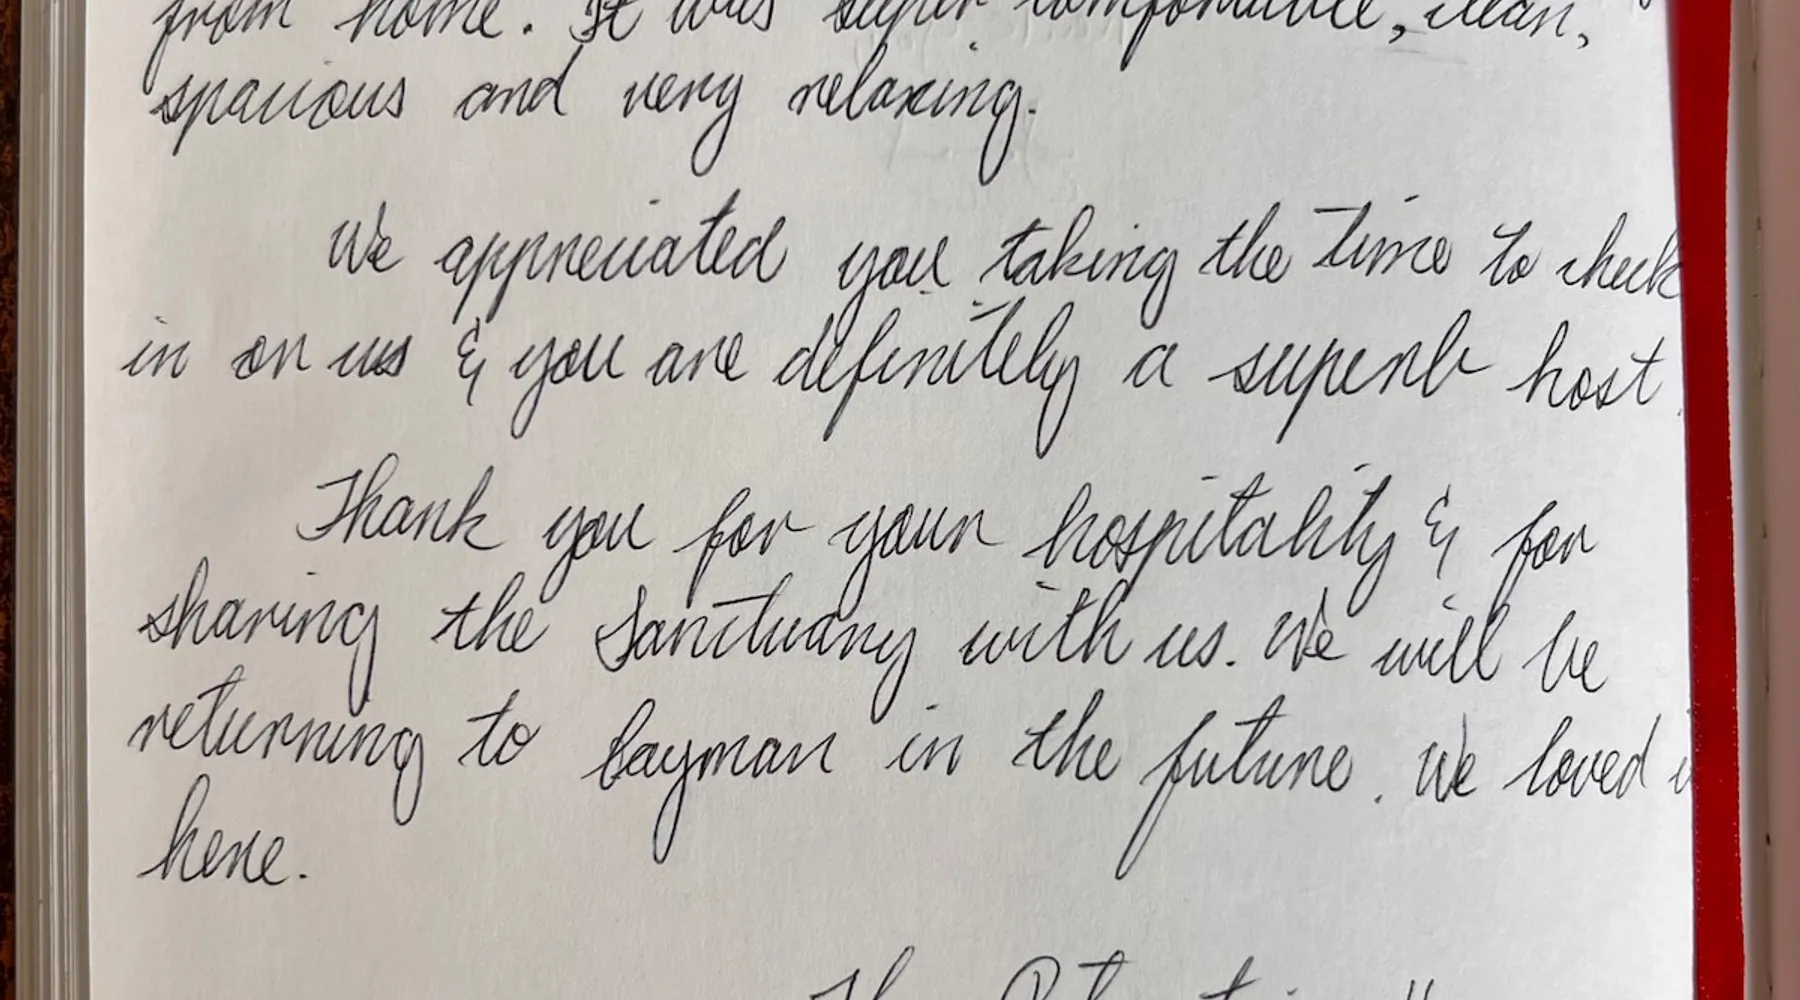 from home. It was super comfortable, clean,
spacious and very relaxing.
We appreciated you taking the time to check
in on us & you are definitely a superb host.
Thank you for your hospitality & for
sharing the Sanctuary with us. We will be
returning to Cayman in the future. We loved
here.
The